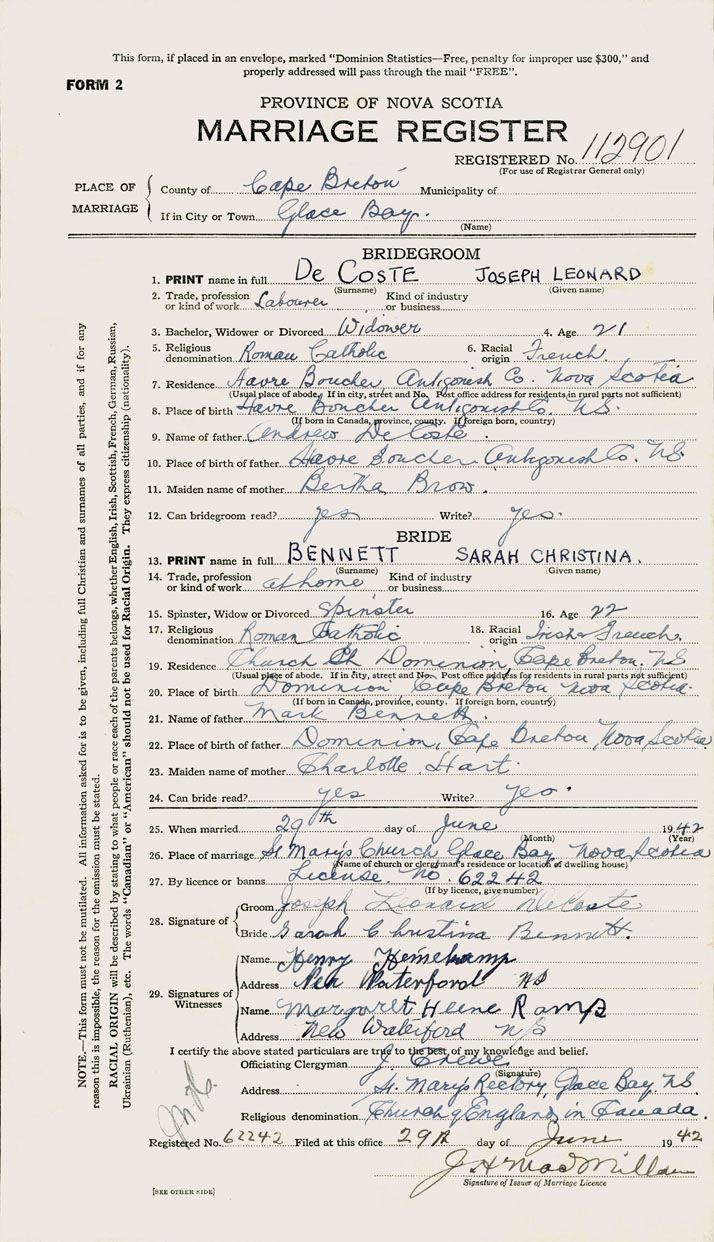 This form, if placed in an envelope, marked "Dominion Statistics—Free, penalty for improper use $300," and
properly addressed will pass through the mail "FREE".
FORM 2
PROVINCE OF NOVA SCOTIA
MARRIAGE REGISTER
REGISTERED No. 112901
(For use of Registrar General only)
PLACE OF MARRIAGE
County of Cape Breton Municipality of
If in City or Town Glace Bay.
(Name)
BRIDEGROOM
1. PRINT name in full DE COSTE JOSEPH LEONARD
(Surname) (Given name)
2. Trade, profession or kind of work Labourer Kind of industry or business
3. Bachelor, Widower or Divorced Widower 4. Age 21
5. Religious denomination Roman Catholic 6. Racial origin French
7. Residence Havre Boucher, Antigonish Co. Nova Scotia
(Usual place of abode. If in city, street and No. Post office address for residents in rural parts not sufficient)
8. Place of birth Havre Boucher Antigonish Co. N.S.
(If born in Canada, province, county. If foreign born, country)
9. Name of father Andrew DeCoste
10. Place of birth of father Havre Boucher Antigonish Co. N.S.
11. Maiden name of mother Bertha Brow.
12. Can bridegroom read? yes Write? yes.
BRIDE
13. PRINT name in full BENNETT SARAH CHRISTINA.
(Surname) (Given name)
14. Trade, profession or kind of work at home Kind of industry or business
15. Spinster, Widow or Divorced Spinster 16. Age 22
17. Religious denomination Roman Catholic 18. Racial origin Irish French.
19. Residence Church St Dominion, Cape Breton. N.S
(Usual place of abode. If in city, street and No. Post office address for residents in rural parts not sufficient)
20. Place of birth Dominion Cape Breton Nova Scotia.
(If born in Canada, province, county. If foreign born, country)
21. Name of father Mark Bennett.
22. Place of birth of father Dominion, Cape Breton, Nova Scotia
23. Maiden name of mother Charlotte Hart.
24. Can bride read? yes Write? yes.
25. When married 29th day of June 1942
(Month) (Year)
26. Place of marriage St Mary's Church, Glace Bay, Nova Scotia
(Name of church or clergyman's residence or location of dwelling house)
27. By licence or banns License. No. 62242
(If by licence, give number)
28. Signature of
Groom Joseph Leonard DeCoste
Bride Sarah Christina Bennett.
29. Signatures of Witnesses
Name Henry Heinekamp
Address New Waterford NS
Name Margaret Heine Kamp
Address New Waterford N/S
I certify the above stated particulars are true to the best of my knowledge and belief.
Officiating Clergyman J. Crewe
(Signature)
Address St. Marys Rectory, Glace Bay N.S.
Religious denomination Church of England in Canada.
Registered No. 62242 Filed at this office 29th day of June 1942
J H MacMillan
Signature of Issuer of Marriage Licence
[SEE OTHER SIDE]
NOTE.—This form must not be mutilated. All information asked for is to be given, including full Christian and surnames of all parties, and if for any
reason this is impossible, the reason for the omission must be stated.
RACIAL ORIGIN will be described by stating to what people or race each of the parents belongs, whether English, Irish, Scottish, French, German, Russian,
Ukrainian (Ruthenian), etc. The words "Canadian" or "American" should not be used for Racial Origin. They express citizenship (nationality).